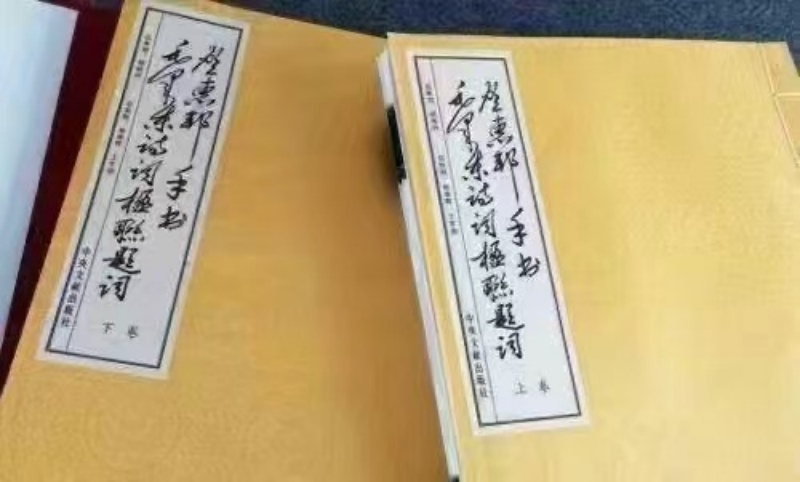 惠邦 手书
毛泽东诗词楹联题词
中央文献出版社
下卷
惠邦 手书
毛泽东诗词楹联题词
中央文献出版社
上卷